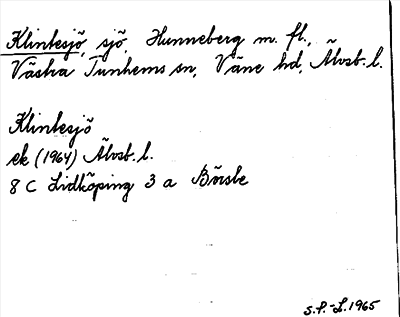 Klintesjö, sjö, Hunneberg m. fl.,
Västra Tunhems sn, Väne hd, Älvsb. l.
Klintesjö
ek (1964) Älvsb. l.
8 C Lidköping 3 a Börsbe
S.P.-L. 1965